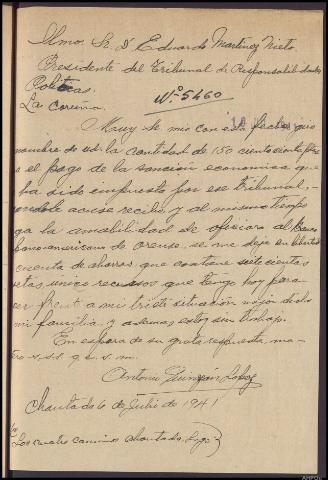 Ilmo. Sr. D. Eduardo Martinez Nieto.
Presidente del Tribunal de Responsabilidades
Politicas.
La Coruña.
Nº 5460
Muy Sr. mio: con esta fecha giro
nombre de ud. la cantidad de 150 cincuenta
a el pago de la sancion economica que
ha sido impuesta por ese Tribunal,
acuse recibo, y al mismo tiempo
ga la amabilidad de oficiar al Banco
americano de Orense, se me deje en libertad
cuenta de ahorros, que contiene setecientas
unicos recursos que tengo hoy para
cer frente a mi triste situación y dar de
mi familia, y ademas estoy sin trabajo.
En espera de su grata respuesta me
s.s.s. q. e. s. m.
Antonio Lopez
Chantada 6 de Julio de 1941
Los cuatro caminos Chantada Lugo
AHPOu